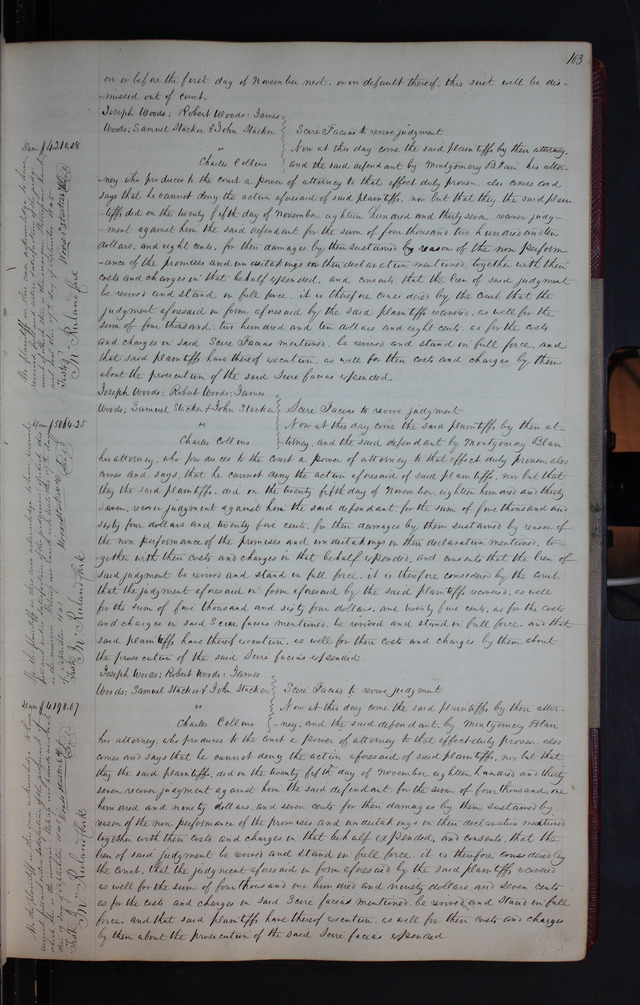 103
on or before the first day of November next, or in default thereof, this suit will be dis-
missed out of court.
Joseph Woods; Robert Woods; James
Woods; Samuel Stacker & John Stacker Scire Facias to revive judgment
vs Now at this day come the said plaintiffs by their attorney,
Charles Collins and the said defendant by Montgomery Blair his attor-
ney who produces to the court a power of attorney to that effect duly proven, also comes and
says that he cannot deny the action aforesaid of said plaintiffs, nor but that they the said plain-
tiffs did on the twenty fifth day of November eighteen hundred and thirty seven recover judg-
ment against him the said defendant for the sum of four thousand two hundred and ten
dollars, and eight cents, for their damages by them sustained by reason of the non perform-
ance of the promises and undertakings in their declaration mentioned, together with their
costs and charges in that behalf expended, and consents that the lien of said judgment
be revived and stand in full force, it is therefore considered by the court that the
judgment aforesaid in form aforesaid by the said plaintiffs recovered, as well for the
sum of four thousand, two hundred and ten dollars and eight cents, as for the costs
and charges in said Scire Facias mentioned, be revived and stand in full force, and
that said plaintiffs have thereof execution, as well for their costs and charges by them
about the prosecution of the said Scire facias expended.
Joseph Woods; Robert Woods; James
Woods; Samuel Stacker & John Stacker Scire Facias to revive judgment
vs Now at this day come the said plaintiffs by their at-
Charles Collins torney, and the said defendant by Montgomery Blair
his attorney, who produces to the court a power of attorney to that effect duly proven, also
comes and says, that he cannot deny the action aforesaid of said plaintiffs, nor but that
they the said plaintiffs, did on the twenty fifth day of November, eighteen hundred and thirty
seven, recover judgment against him the said defendant for the sum of five thousand and
sixty four dollars and twenty five cents, for their damages by them sustained by reason of
the non performance of the promises and undertakings in their declaration mentioned, to-
gether with their costs and charges in that behalf expended, and consents that the lien of
said judgment be revived and stand in full force, it is therefore considered by the court,
that the judgment aforesaid in form aforesaid by the said plaintiffs recovered, as well
for the sum of five thousand and sixty four dollars, and twenty five cents, as for the costs
and charges in said Scire facias mentioned, be revived and stand in full force, and that
said plaintiffs have thereof execution, as well for their costs and charges by them about
the prosecution of the said Scire facias expended.
Joseph Woods; Robert Woods; James
Woods; Samuel Stacker & John Stacker Scire Facias to revive judgment
vs Now at this day come the said plaintiffs by their attor-
Charles Collins ney, and the said defendant, by Montgomery Blair
his attorney, who produces to the court a power of attorney to that effect duly proven, also
comes and says that he cannot deny the action aforesaid of said plaintiffs, nor but that
they the said plaintiffs, did on the twenty fifth day of November eighteen hundred and thirty
seven recover judgment against him the said defendant, for the sum of four thousand one
hundred and ninety dollars, and seven cents for their damages by them sustained by
reason of the non performance of the promises and undertakings in their declaration mentioned
together with their costs and charges in that behalf expended, and consents, that the
lien of said judgment be revived and stand in full force, it is therefore considered by
the court, that the judgment aforesaid in form aforesaid by the said plaintiffs recovered
as well for the sum of four thousand one hundred and ninety dollars and seven cents
as for the costs and charges in said Scire facias mentioned, be revived and stand in full
force, and that said plaintiffs have thereof execution, as well for their costs and charges
by them about the prosecution of the said Scire facias expended.
Dam $4210.08
M. Ruland Clerk
M. Ruland Clerk
Dam $4190.07
M. Ruland Clerk